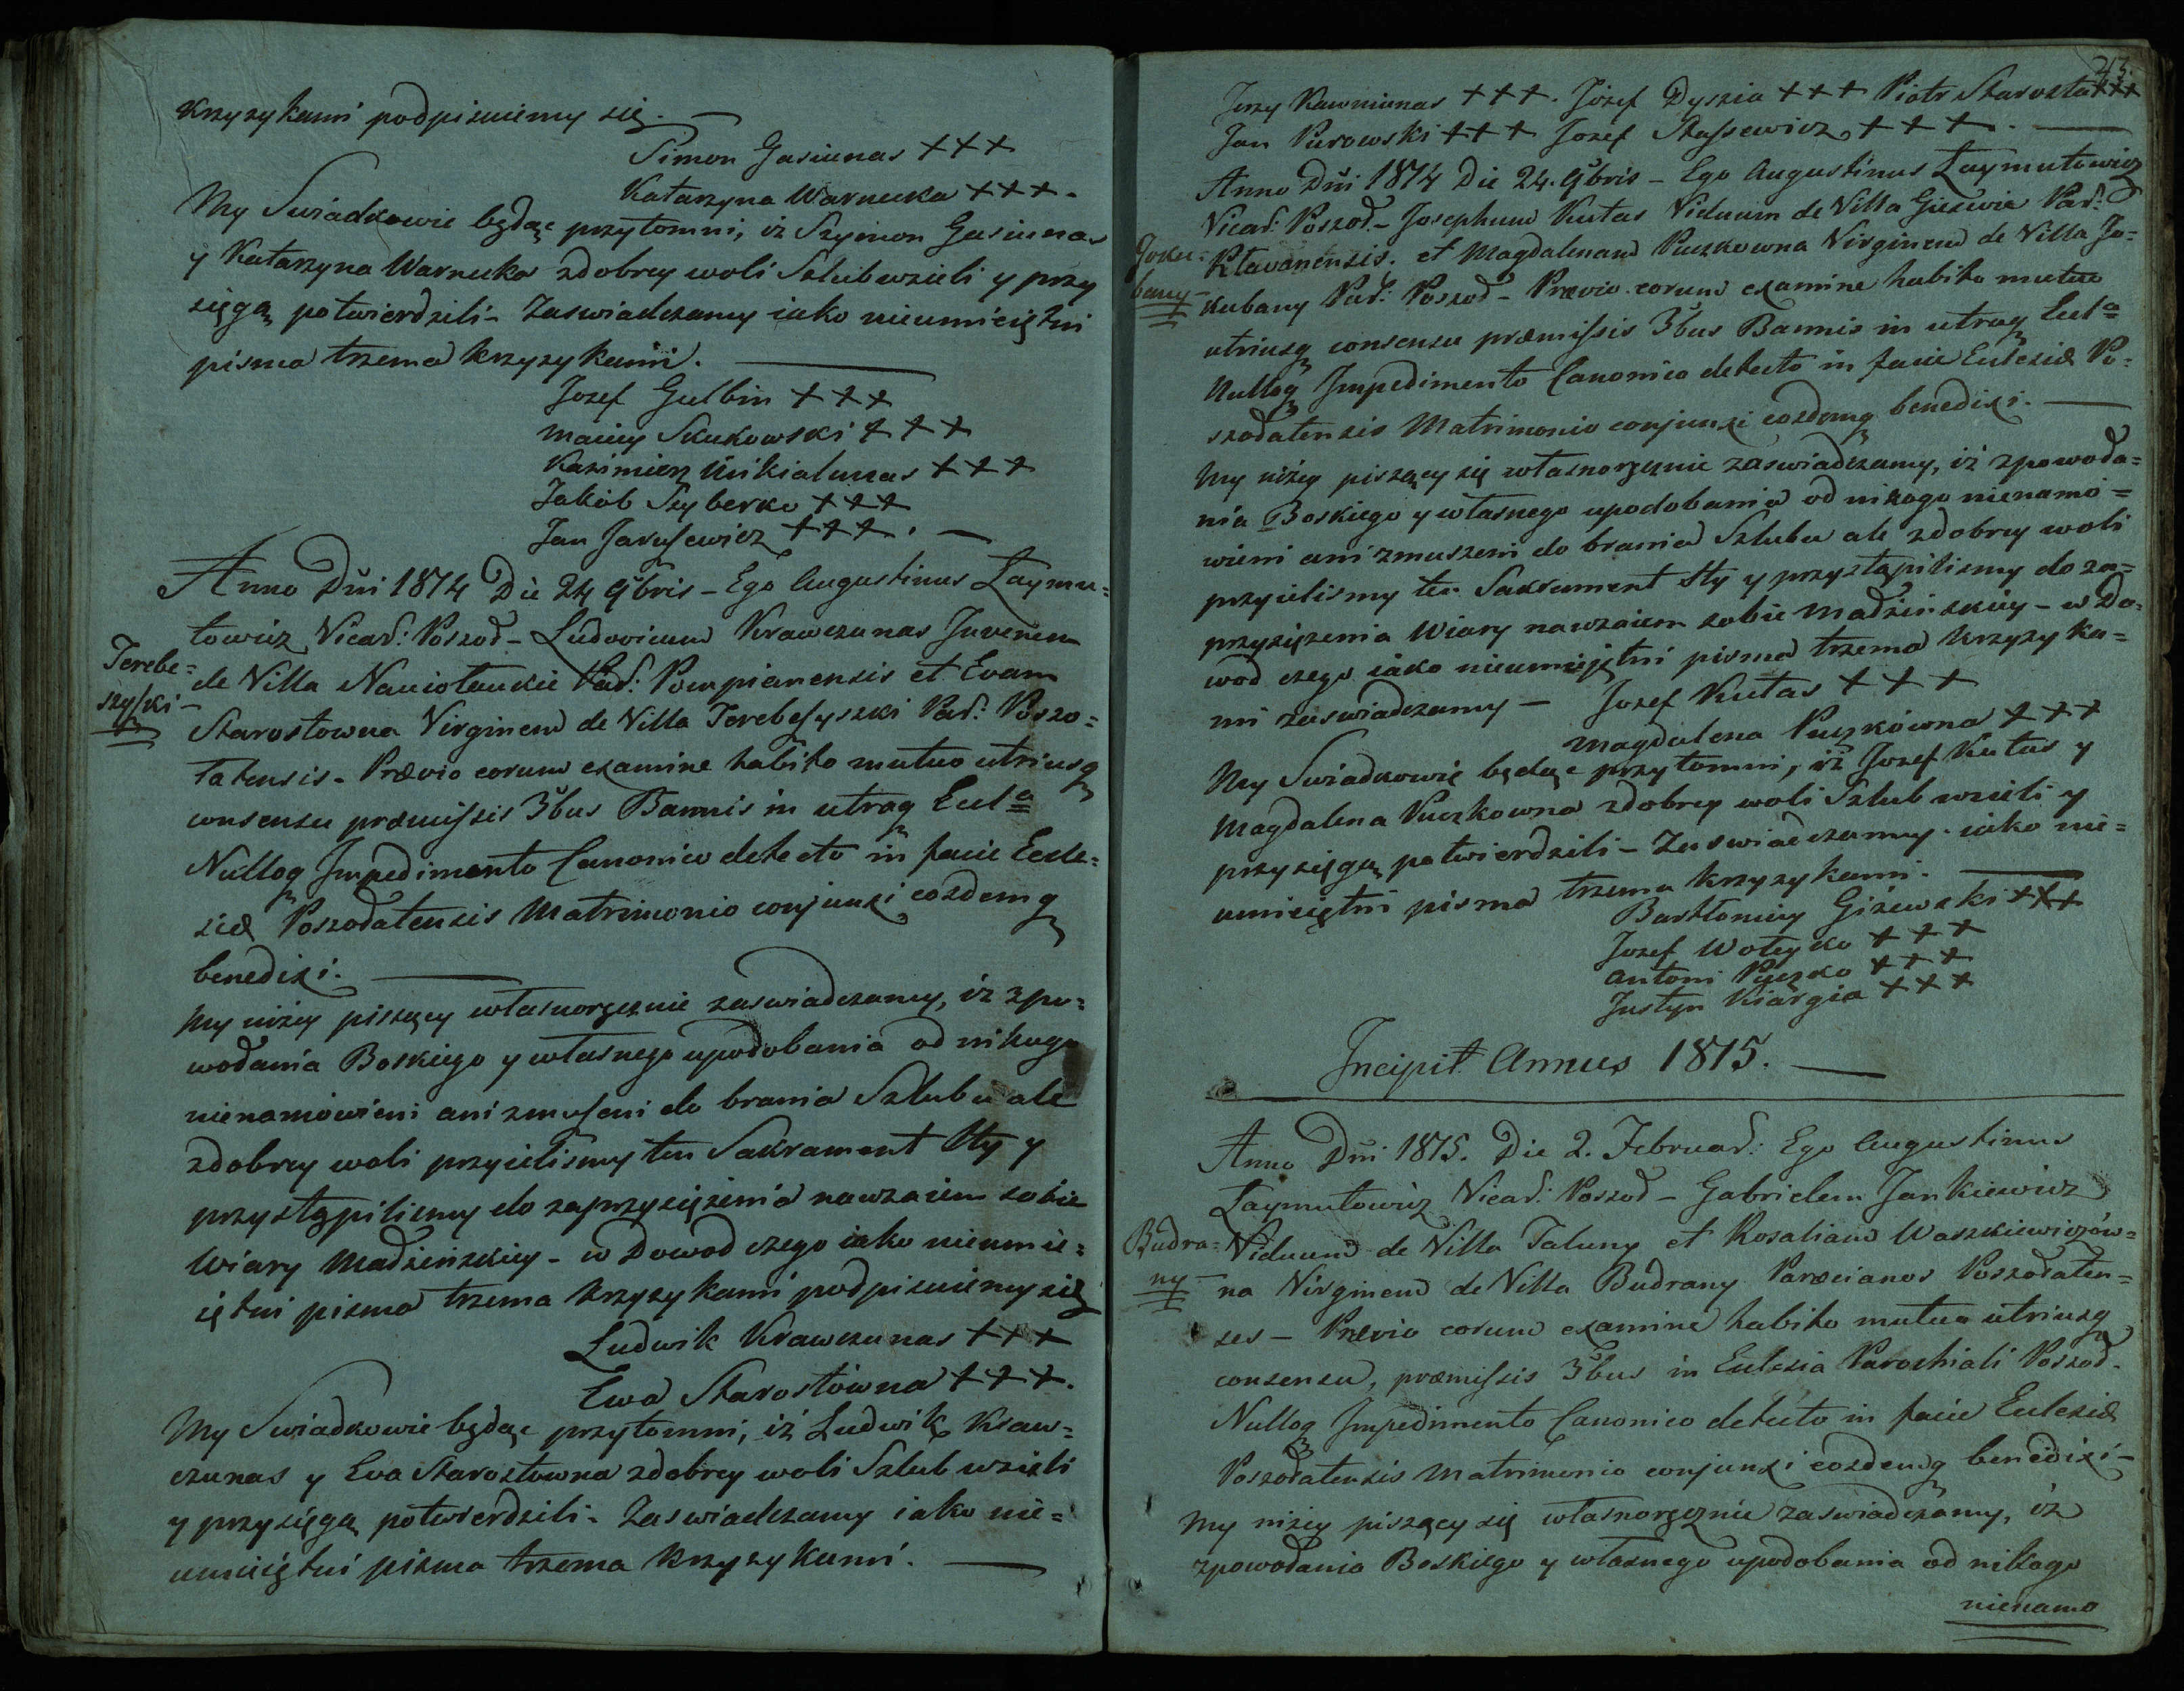 krzyzykami podpisuiemy się. —
Simon Gasiunas +++
Katarzyna Warnecka +++.
My Swiadkowie będąc przytomni, iż Szymon Gasiunas
y Katarzyna Warnecka zdobrey woli Szlub wzieli y przy
sięgą potwierdzili - Zaswiadczamy iako nieumieiętni
pisma trzema krzyzykami. —
Jozef Gulbin +++
Maciey Skukowski +++
Kazimierz Mikialunas +++
Jakób Szyberko +++
Jan Jarusewicz +++. —
Anno Dñi 1814 Die 24 9bris - Ego Augustinus Laymu=
towicz Vicar: Poszod - Ludovicum Krawczunas Juvenem
Terebe=
szyszki -
de Villa Naciotauckie Par: Pompianensis et Evam
Starostowna Virginem de Villa Terebeszyszki Par: Poszo=
latensis - Prævio eorum examine habito mutuo utriusq
consensu præmissis 3bus Bannis in utraq Eccl~a
Nulloq Impedimento Canonico detecto in facie Eccle=
siæ Poszodatensis Matrimonio conjunxi eosdemq
benedixi. —
My niżey piszący własnoręcznie zaswiadczamy, iż zpo=
wodania Boskiego y własnego upodobania od nikogo
nienamówieni ani zmuszeni do brania Szlubu ale
zdobrey woli przyieliśmy ten Sakrament Sty y
przystąpiliśmy do zaprzysiężenia nawzaiem sobie
Wiary Madżeńskiey - w Dowod czego iako nieumie=
iętni pisma trzema krzyzykami podpisuiemy się
Ludwik Krawczunas +++
Ewa Starostówna +++.
My Swiadkowie będąc przytomni, iż Ludwik Kraw=
czunas y Eva Starostowna zdobrey woli Szlub wzieli
y przysięgą potwierdzili - Zaswiadczamy iako nie=
umieiętni pisma trzema Krzyzykami. —
213.
Jerzy Kawniunas +++. Józef Dyszia +++ Piotr Starosta +++
Jan Purowski +++ Jozef Staszewicz +++. —
Anno Dñi 1814 Die 24. 9bris - Ego Augustinus Laymutowicz
Vicar: Poszod - Josephum Kutas Viduum de Villa Giezwie Par:
Joku=
bany -
Kławanensis. et Magdalenam Puczkowna Virginem de Villa Jo=
kubany Par: Poszod - Prævio eorum examine habito mutuo
utriusq consensu præmissis 3bus Bannis in utraq Eccl~a
Nulloq Impedimento Canonico detecto in facie Ecclesiæ Po=
szodatensis Matrimonio conjunxi eosdemq benedixi. —
My niżey piszący się własnoręcznie zaswiadczamy, iż zpowoda=
nia Boskiego y własnego upodobania od nikogo nienamó=
wieni ani zmuszeni do brania Szlubu ale zdobrey woli
przyielismy ten Sakrament Sty y przystąpilismy do za=
przysiężenia Wiary nawzaiem sobie Madżeńskiey - w Do=
wod czego iako nieumieiętni pisma trzema krzyzyka=
mi zaswiadczamy — Jozef Kutas +++
Magdalena Puczkówna +++
My Swiadkowie będąc przytomni, iż Jozef Kutas y
Magdalena Puczkowna zdobrey woli Szlub wzieli y
przysięgą potwierdzili - Zaswiadczamy iako nie=
umieiętni pisma trzema krzyzykami. —
Bartłomiey Giżewski +++
Jozef Wołeyko +++
Antoni Puczko +++
Justyn Kiargia +++
Incipit Annus 1815. —
Anno Dñi 1815. Die 2. Februar: Ego Augustinus
Laymutowicz Vicar: Poszod - Gabrielem Jankiewicz
Budra=
ny -
Viduum de Villa Taluny et Rosaliam Waszkiewiczów=
na Virginem de Villa Budrany Paræcianos Poszodaten=
ses - Prævio eorum examine habito mutuo utriusq
consensu, præmissis 3bus in Ecclesia Parochiali Poszod.
Nulloq Impedimento Canonico detecto in facie Ecclesiæ
Poszodatensis Matrimonio conjunxi eosdemq benedixi -
My niżey piszący się własnoręcznie zaswiadczamy, iż
zpowodania Boskiego y własnego upodobania od nikogo
nienamo